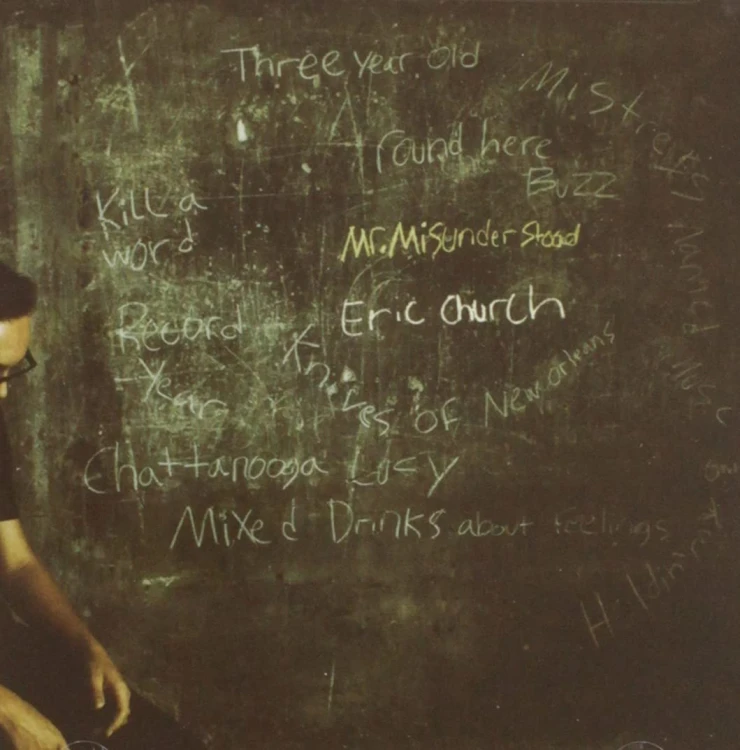 Three year old
Mistress Named Music
round here
Buzz
Kill a
word
Mr. Misunderstood
Eric Church
Record
Year
Knives of New Orleans
Chattanooga Lucy
Mixed Drinks about feelings
Holdin